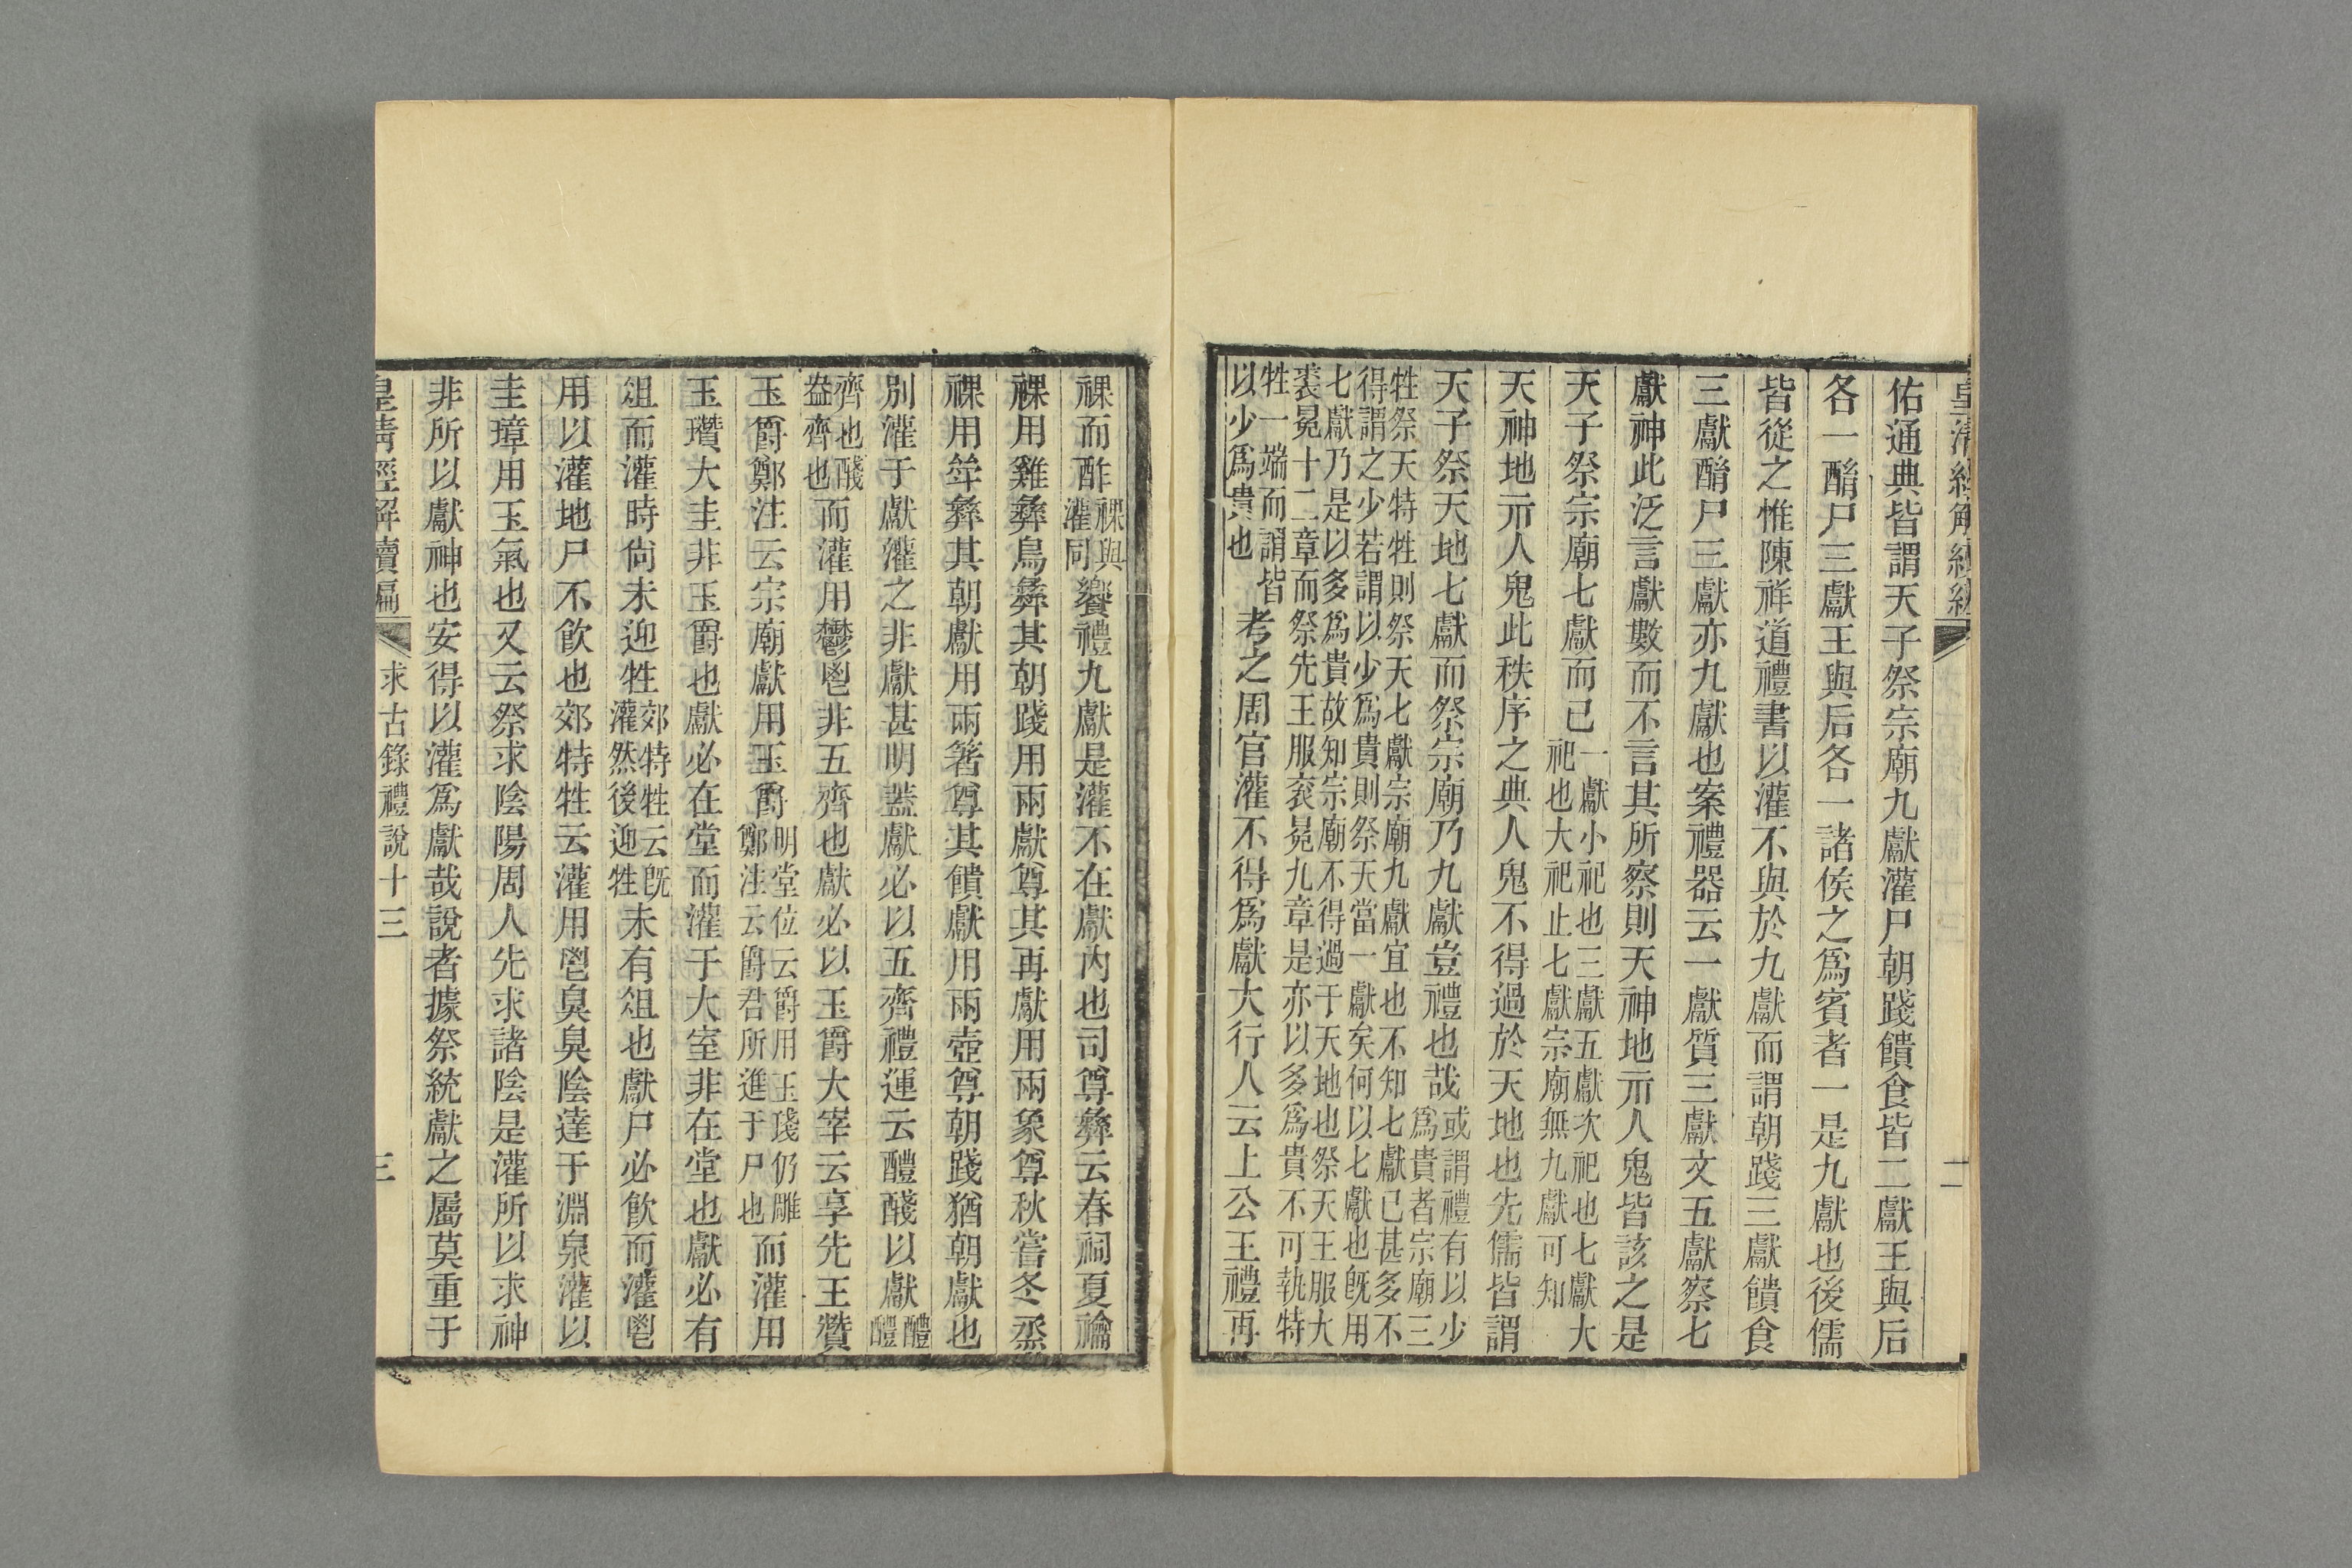 皇清經解續編
二
佑通典皆謂天子祭宗廟九獻灌尸朝踐饋食皆二獻王與后
各一酳尸三獻王與后各一諸侯之爲賓者一是九獻也後儒
皆從之惟陳祥道禮書以灌不與於九獻而謂朝踐三獻饋食
三獻酳尸三獻亦九獻也案禮器云一獻質三獻文五獻察七
獻神此泛言獻數而不言其所察則天神地示人鬼皆該之是
天子祭宗廟七獻而已一獻小祀也三獻五獻次祀也七獻大祀也大祀止七獻宗廟無九獻可知
天神地示人鬼此秩序之典人鬼不得過於天地也先儒皆謂
天子祭天地七獻而祭宗廟乃九獻豈禮也哉或謂禮有以少爲貴者宗廟三
牲祭天特牲則祭天七獻宗廟九獻宜也不知七獻已甚多不得謂之少若謂以少爲貴則祭天當一獻矣何以七獻也旣用
七獻乃是以多爲貴故知宗廟不得過于天地也祭天王服大裘冕十二章而祭先王服袞冕九章是亦以多爲貴不可執特
牲一端而謂皆以少爲貴也考之周官灌不得爲獻大行人云上公王禮再
祼而酢祼與灌同饗禮九獻是灌不在獻內也司尊彝云春祠夏禴
祼用雞彝鳥彝其朝踐用兩獻尊其再獻用兩象尊秋嘗冬烝
祼用斝彝其朝獻用兩著尊其饋獻用兩壺尊朝踐猶朝獻也
別灌于獻灌之非獻甚明蓋獻必以五齊禮運云醴醆以獻醴醴
齊也醆盎齊也而灌用鬱鬯非五齊也獻必以玉爵大宰云享先王贊
玉爵鄭注云宗廟獻用玉爵明堂位云爵用玉琖仍雕鄭注云爵君所進于尸也而灌用
玉瓚大圭非玉爵也獻必在堂而灌于大室非在堂也獻必有
俎而灌時尙未迎牲郊特牲云旣灌然後迎牲未有俎也獻尸必飮而灌鬯
用以灌地尸不飮也郊特牲云灌用鬯臭臭陰達于淵泉灌以
圭璋用玉氣也又云祭求陰陽周人先求諸陰是灌所以求神
非所以獻神也安得以灌爲獻哉說者據祭統獻之屬莫重于
皇淸經解續編
求古錄禮說十三
三